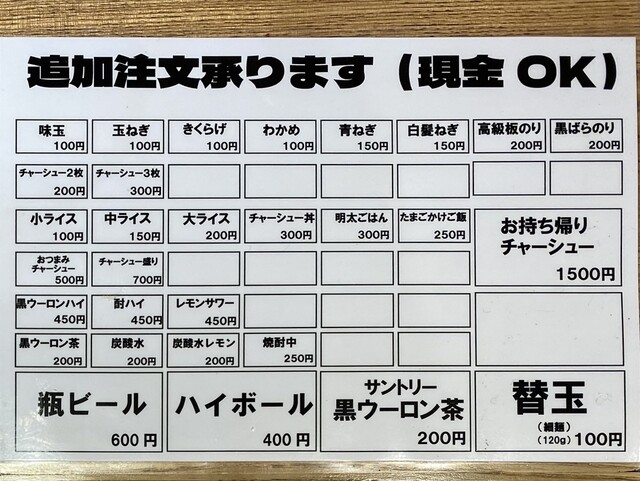 追加注文承ります（現金 OK）
味玉 100円
玉ねぎ 100円
きくらげ 100円
わかめ 100円
青ねぎ 150円
白髪ねぎ 150円
高級板のり 200円
黒ばらのり 200円
チャーシュー2枚 200円
チャーシュー3枚 300円
小ライス 100円
中ライス 150円
大ライス 200円
チャーシュー丼 300円
明太ごはん 300円
たまごかけご飯 250円
お持ち帰り
チャーシュー
1500円
おつまみ
チャーシュー
500円
チャーシュー盛り 700円
黒ウーロンハイ 450円
酎ハイ 450円
レモンサワー 450円
黒ウーロン茶 200円
炭酸水 200円
炭酸水レモン 200円
焼酎中 250円
瓶ビール
600円
ハイボール
400円
サントリー
黒ウーロン茶
200円
替玉
（細麺）
（120g）100円